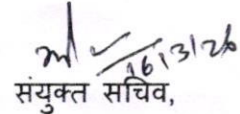 16/3/26
संयुक्त सचिव,